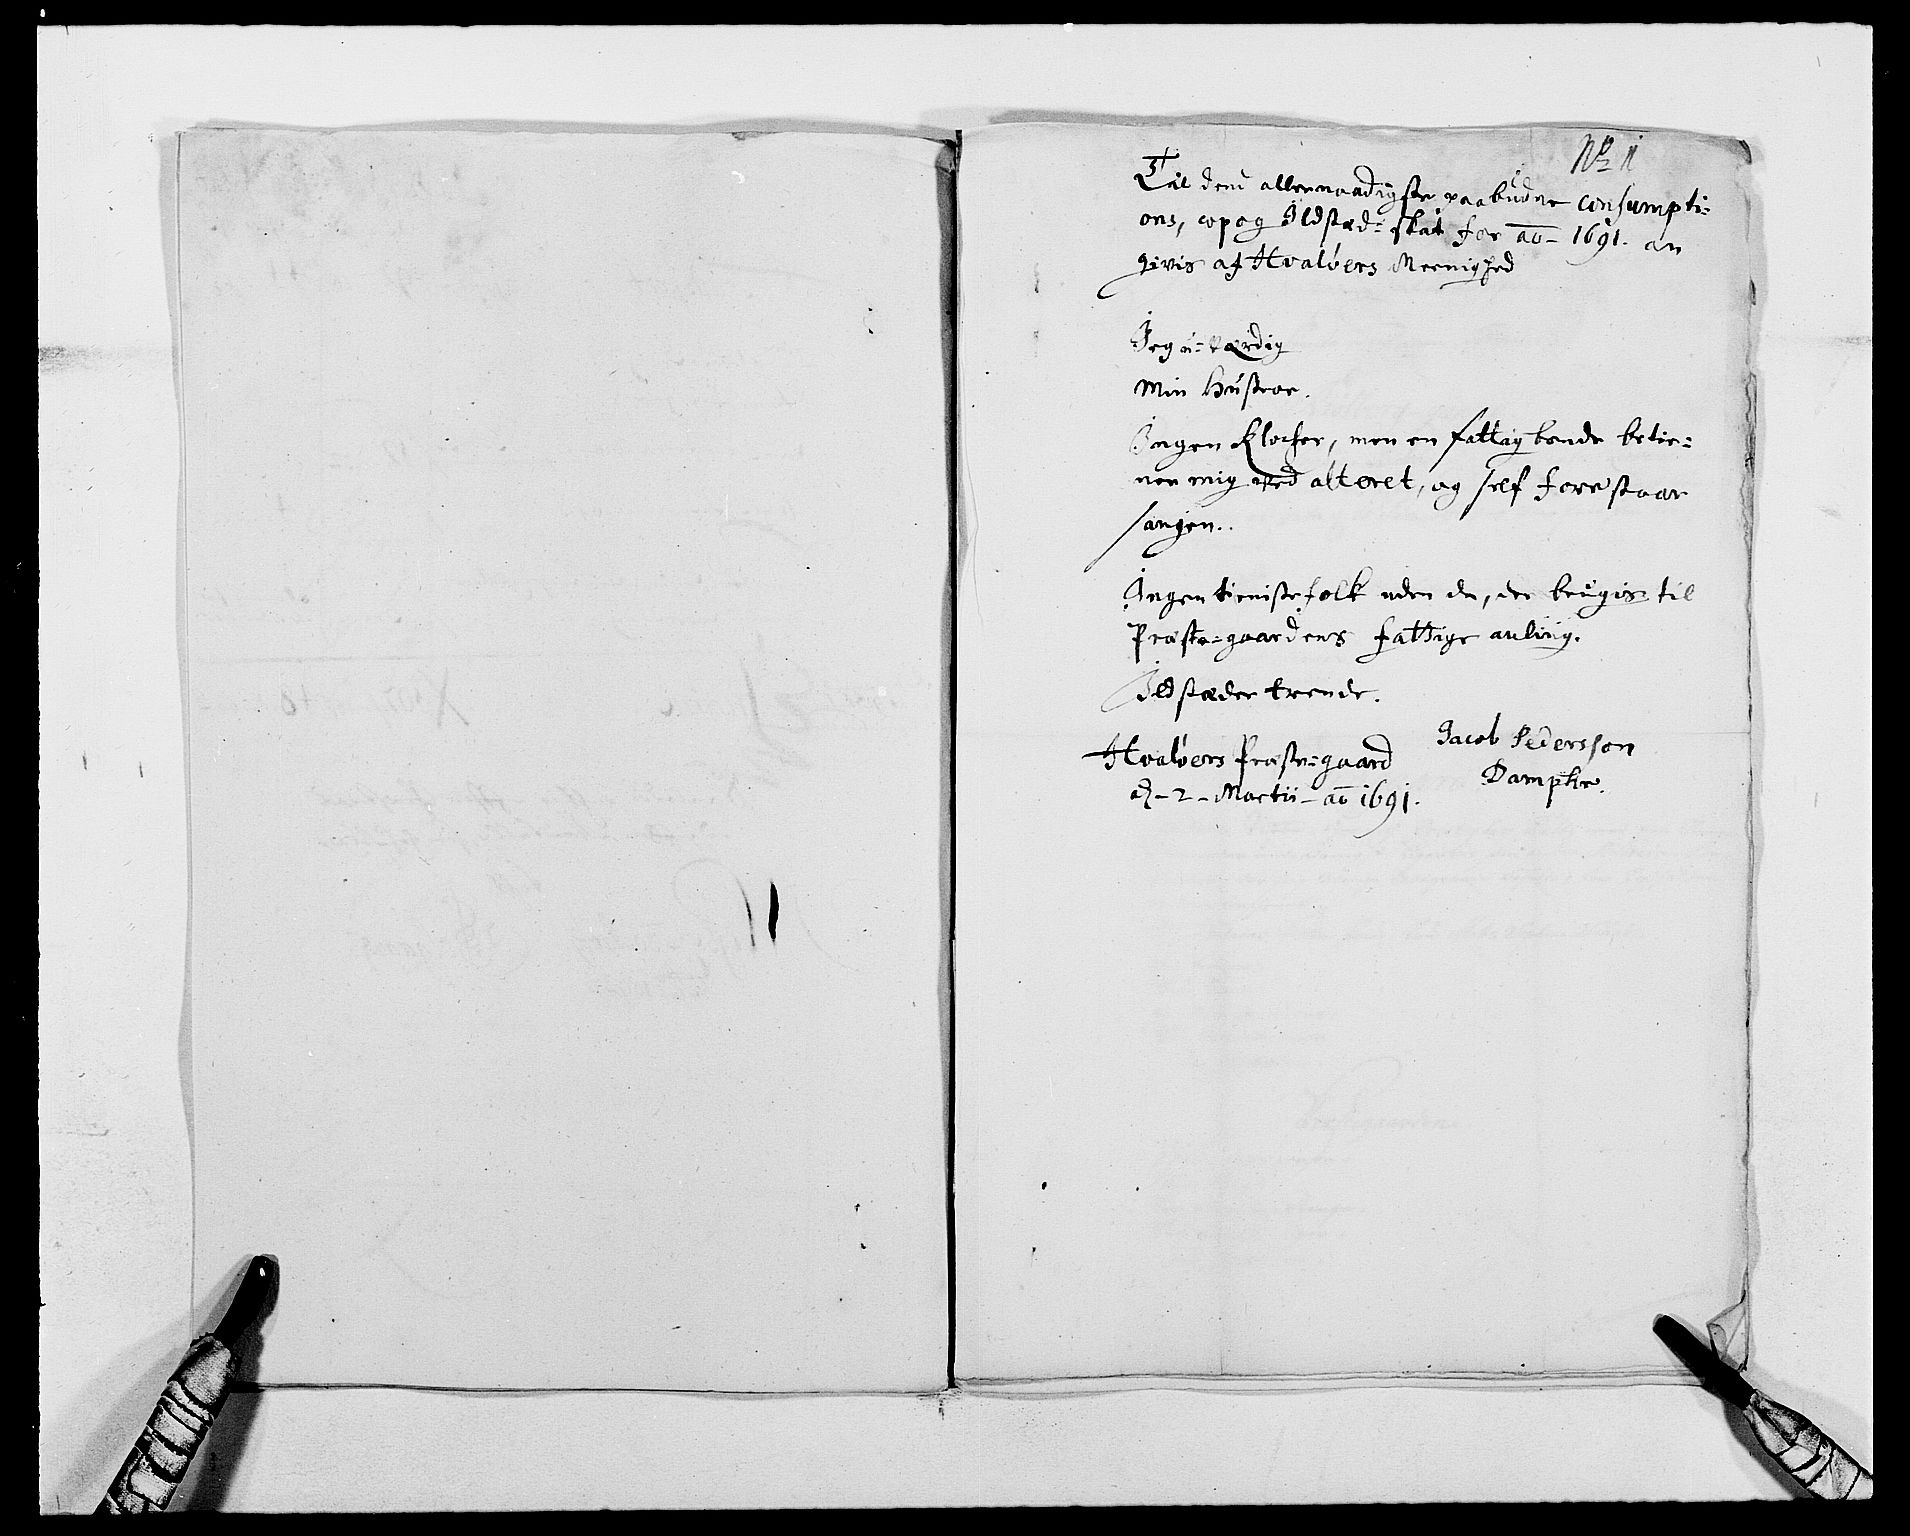 No 1
Til dend allernaadigste paabudne consumpti-
ons, cop og Ildstæd- skat for ao 1691. an
givis af Hvaløers Meenighed
Jeg u-værdig
Min Hustroe.
Ingen Klocher, men en fattig bonde betie-
ner mig ved alteret, og self forestaar
sangen.
Ingen tienistefolk uden de, der brugis til
Præste-gaardens fattige auling.
Ildstæder trende.
Hvaløers Præste-gaard
Jacob Pedersson
Dampke.
d - 2 - Martii - ao 1691.